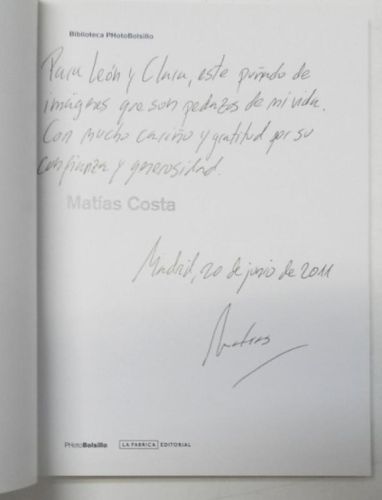 Biblioteca PHotoBolsillo
Para León y Clara, este puñado de
imágenes que son pedazos de mi vida.
Con mucho cariño y gratitud por su
confianza y generosidad.
Matías Costa
Madrid, 20 de junio de 2011
Matías
PHotoBolsillo LA FABRICA EDITORIAL